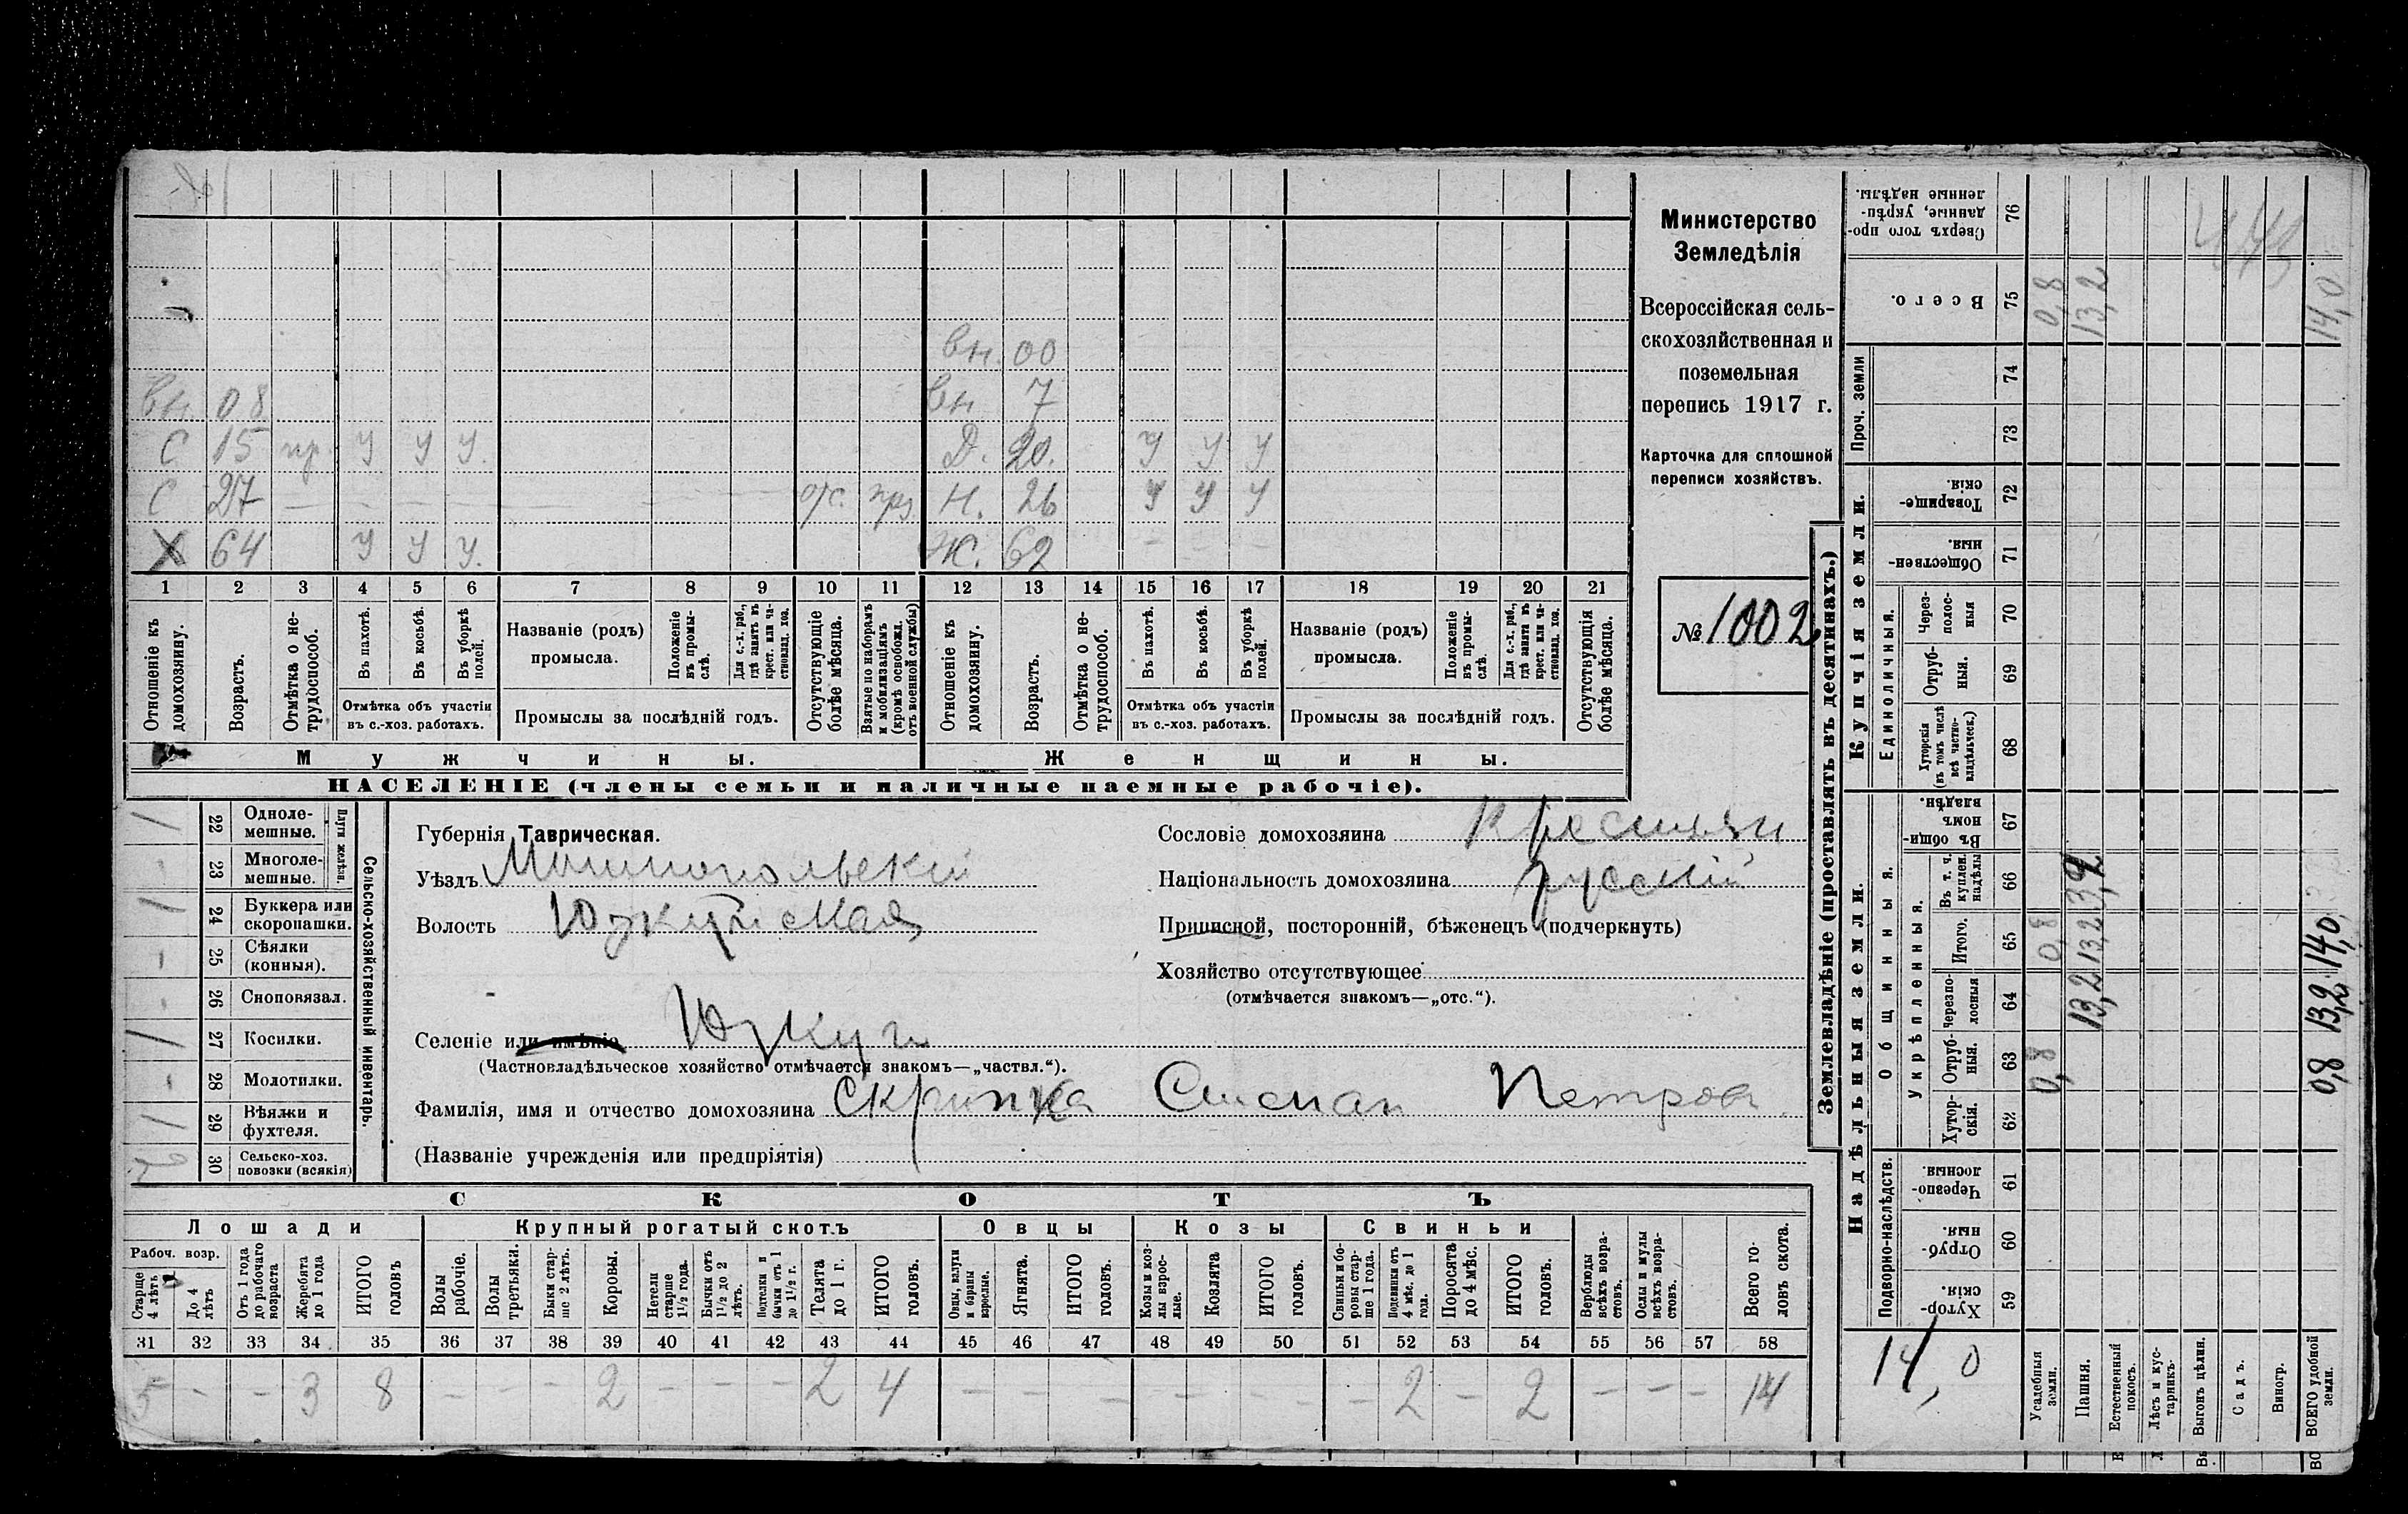 вн. 00
вн. 08 вн 7
С 15 нр. У У У. Д. 20. У У У
С 27 — — — — — — — отс. прз Н. 26 У У У
Х 64 У У У. Ж. 62 — — —
1 2 3 4 5 6 7 8 9 10 11 12 13 14 15 16 17 18 19 20 21
Отношеніе къ домохозяину.
Возрастъ.
Отмѣтка о не-трудоспособ.
Въ пахотѣ.
Въ косьбѣ.
Въ уборкѣ полей.
Отмѣтка объ участіи
въ с.-хоз. работахъ.
Названіе (родъ)
промысла.
Положеніе въ промы-слѣ.
Для с.-х. раб., гдѣ занятъ въ крест. или ча-стновлад. хоз.
Промыслы за послѣдній годъ.
Отсутствующіе болѣе мѣсяца.
Взятые по наборамъ и мобилизаціямъ (кромѣ освобожд. отъ военной службы)
Отношеніе къ домохозяину.
Возрастъ.
Отмѣтка о не-трудоспособ.
Въ пахотѣ.
Въ косьбѣ.
Въ уборкѣ полей.
Отмѣтка объ участіи
въ с.-хоз. работахъ.
Названіе (родъ)
промысла.
Положеніе въ промы-слѣ.
Для с.-х. раб., гдѣ занята въ крест. или ча-стновлад. хоз.
Промыслы за послѣдній годъ.
Отсутствующія болѣе мѣсяца.
Мужчины. Женщины.
НАСЕЛЕНІЕ (члены семьи и наличные наемные рабочіе).
Министерство
Земледѣлія
Всероссійская сель-
скохозяйственная и
поземельная
перепись 1917 г.
Карточка для сплошной
переписи хозяйствъ.
№ 1002
1 22 Одноле-мешные.
- 23 Многоле-мешные.
Плуги желѣзн.
1 24 Буккера или скоропашки.
- 25 Сѣялки (конныя).
- 26 Сноповязал.
1 27 Косилки.
- 28 Молотилки.
1 29 Вѣялки и фухтеля.
30 Сельско-хоз. повозки (всякія)
Сельско-хозяйственный инвентарь.
Губернія Таврическая.
Уѣздъ Мелитопольскій
Волость Юзкуйская
Селеніе или имѣніе Юзкуи
(Частновладѣльческое хозяйство отмѣчается знакомъ—„частвл.“).
Фамилія, имя и отчество домохозяина Скрипка Степан Петров.
(Названіе учрежденія или предпріятія)
Сословіе домохозяина Крестьян
Національность домохозяина русскій
Приписной, посторонній, бѣженецъ (подчеркнуть)
Хозяйство отсутствующее
(отмѣчается знакомъ—„отс.“).
СКОТЪ
Лошади Крупный рогатый скотъ Овцы Козы Свиньи
Рабоч. возр.
Старше 4 лѣтъ
До 4 лѣтъ
Отъ 1 года до рабочаго возраста
Жеребята до 1 года
ИТОГО головъ
Волы рабочіе.
Волы третьяки.
Быки стар-ше 2 лѣтъ.
Коровы.
Нетели старше 1½ года.
Бычки отъ 1½ до 2 лѣтъ.
Подтелки и бычки отъ 1 до 1½ г.
Телята до 1 г.
ИТОГО головъ.
Овцы, валухи и бараны взрослые.
Ягнята.
ИТОГО головъ.
Козы и коз-лы взрос-лые.
Козлята
ИТОГО головъ.
Свиньи и бо-ровы стар-ше 1 года.
Подсвинки отъ 4 мѣс. до 1 года.
Поросята до 4 мѣс.
ИТОГО головъ.
Верблюды всѣхъ возра-стовъ.
Ослы и мулы всѣхъ возра-стовъ.
Всего го-ловъ скота.
31 32 33 34 35 36 37 38 39 40 41 42 43 44 45 46 47 48 49 50 51 52 53 54 55 56 57 58
5 - - 3 8 - - - 2 - - - 2 4 - - - - - - - 2 - 2 - - - 14
Землевладѣніе (проставлять въ десятинахъ.)
Надѣльныя земли. Купчія земли.
Проч. земли
Подворно-наслѣдств.
Общинныя.
Укрѣпленныя.
Единоличныя.
Сверхъ того про-данные, укрѣп-ленные надѣлы. 76
Всего. 75 0,8 13,2 14,0
74
73
Товарище-скія. 72
Обществен-ныя. 71
Через-полос-ныя 70
Отруб-ныя. 69
Хуторскія (въ томъ числѣ всѣ частно-владѣльческ.) 68
Въ общин-номъ владѣн. 67
Въ т. ч. куплен. надѣлы 66
Итого. 65 0,8 13,2 14,0
Черезпо-лосныя 64 13,2 13,2
Отруб-ныя. 63 0,8 0,8
Хутор-скія. 62
Черезпо-лосныя 61
Отруб-ныя 60
Хутор-скія. 59
14,0
Усадебныя земли.
Пашня.
Естественный покосъ.
Лѣсъ и кус-тарникъ.
Выгонъ цѣлин.
Садъ.
Виногр.
ВСЕГО удобной земли.